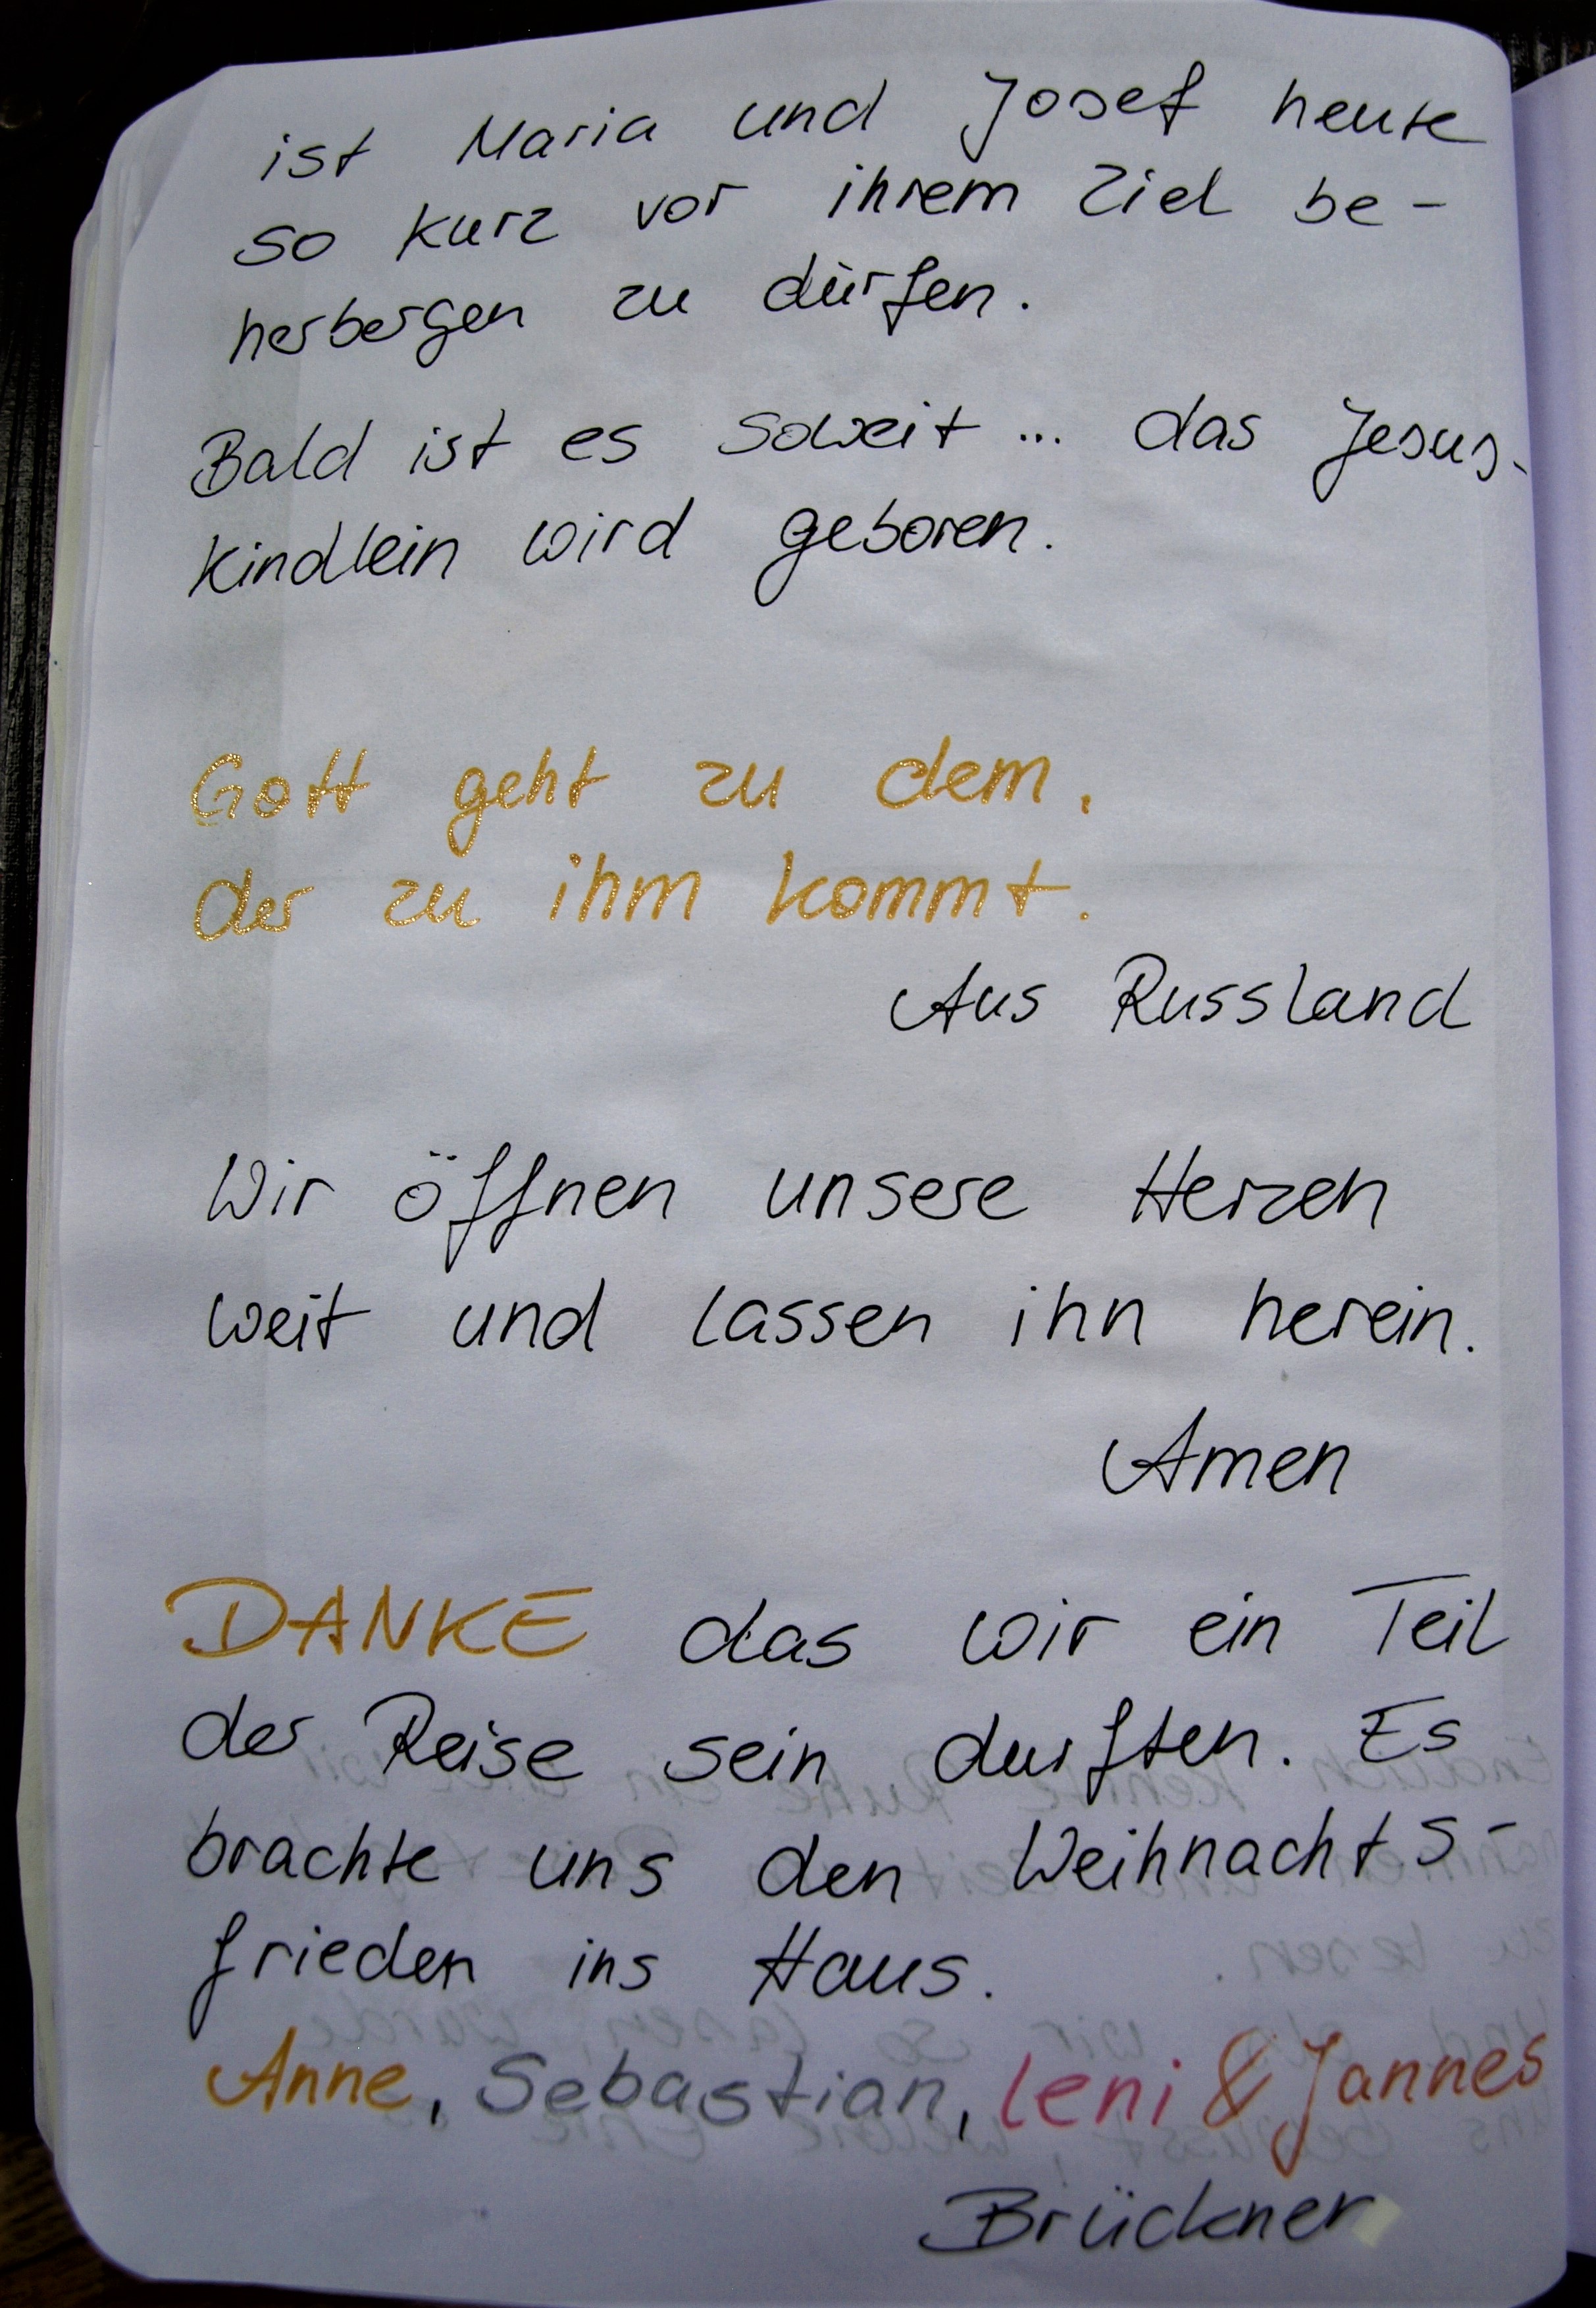 ist Maria und Josef heute
so kurz vor ihrem Ziel be-
herbergen zu dürfen.
Bald ist es soweit ... das Jesus-
kindlein wird geboren.
Gott geht zu dem,
der zu ihm kommt.
Aus Russland
Wir öffnen unsere Herzen
weit und lassen ihn herein.
Amen
DANKE das wir ein Teil
der Reise sein durften. Es
brachte uns den Weihnachts-
frieden ins Haus.
Anne, Sebastian, Leni & Jannes
Brückner